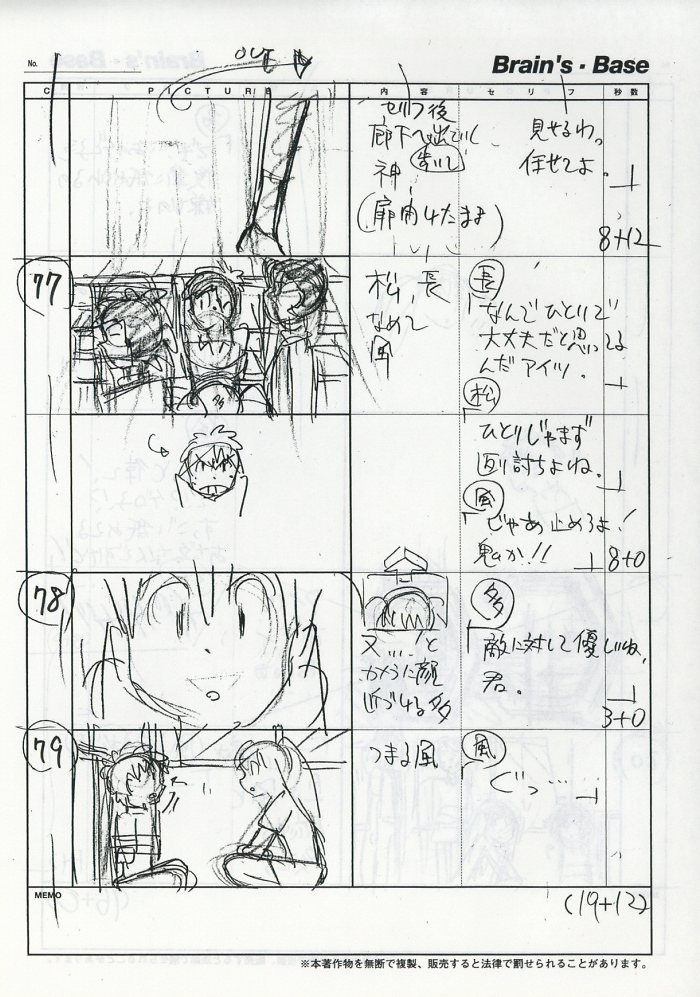 No.
Brain's・Base
C PICTURE 内容 セリフ 秒数
OUT
セリフ後
廊下へ出ていく
歩いて
神
見せるわ。
任せてよ。
8+12
77
松、長
なめて
風
長
なんでひとりで
大丈夫だと思ってる
んだアイツ。
松
ひとりじゃまず
返り討ちよね。
風
じゃあ止めろよ!
鬼か!!
8+0
78
カメラに顔
近づける多
多
敵に対して優しいね、
君。
3+0
79
つまる風
風
ぐっ……
MEMO
(19+12)
※本著作物を無断で複製、販売すると法律で罰せられることがあります。